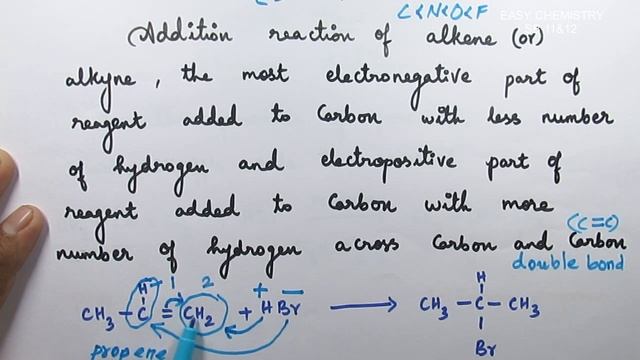 C<N<O<F
EASY CHEMISTRY
Addition reaction of alkene (or)
alkyne, the most electronegative part of
reagent added to Carbon with less number
of hydrogen and electropositive part of
reagent added to Carbon with more
(C=C)
number of hydrogen across Carbon and Carbon
double bond
H 1 2 + − H
CH3 – C = CH2 + HBr ⟶ CH3 – C – CH3
propene Br